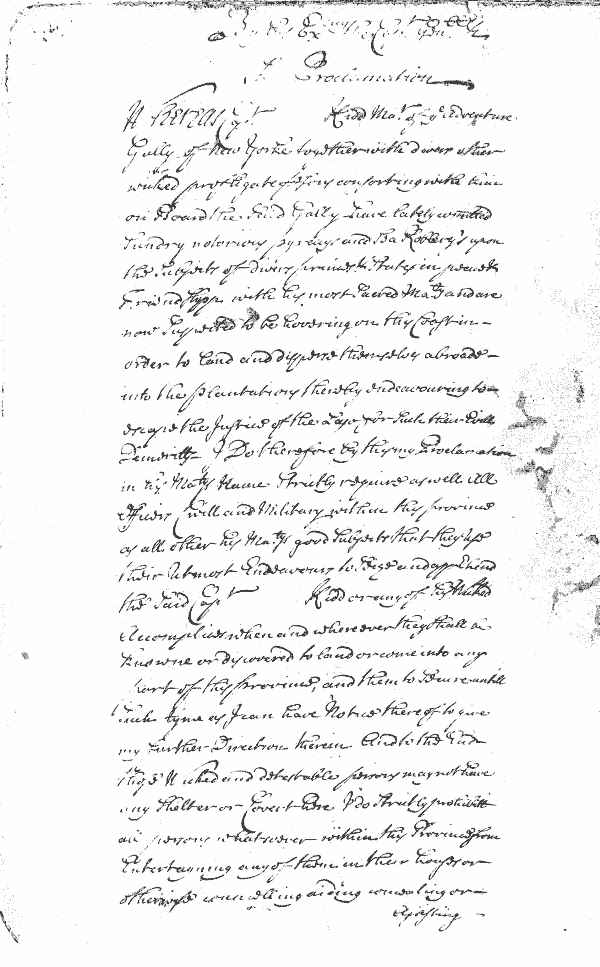 By his Ex:cy the Capt. Gen:ll &c
A Proclamation
WHEREAS Capt Kidd Mar. of ye Adventure
Gally of New Yorke together with divers other
wicked profligate persons consorting with him
on Board the said Gally have lately comitted
Sundry notorious pyracys and Sea Robbery's upon
the Subjects of divers princes & States in peace &
Friendshipp with his most Sacred Maty and are
now Suspected to be hovering on this Coast in
order to land and disperse themselves abroade
into the plantations thereby endeavouring to
escape the Justice of the Law for Such their Evill
Demeritts I Do therefore by this my Proclamation
in his Matys Name Strictly require as well All
Officers Civill and Military within this province
as all other his Matys good Subjects that they use
their Utmost Endeavours to Seize and apprehend
the Said Capt Kidd or any of his Wicked
Accomplices when and wherever they Shall be
knowne or discovered to land or come into any
part of this province, and them to Secure untill
Such tyme as I can have Notice thereof to give
my further Direction therein And to the End
these Wicked and detestable persons may not have
any Shelter or Covert here I do Strictly prohibitt
all persons whatsoever within this Province from
Entertayning any of them in their houses or
otherwise councelling aiding concealing or
Assisting